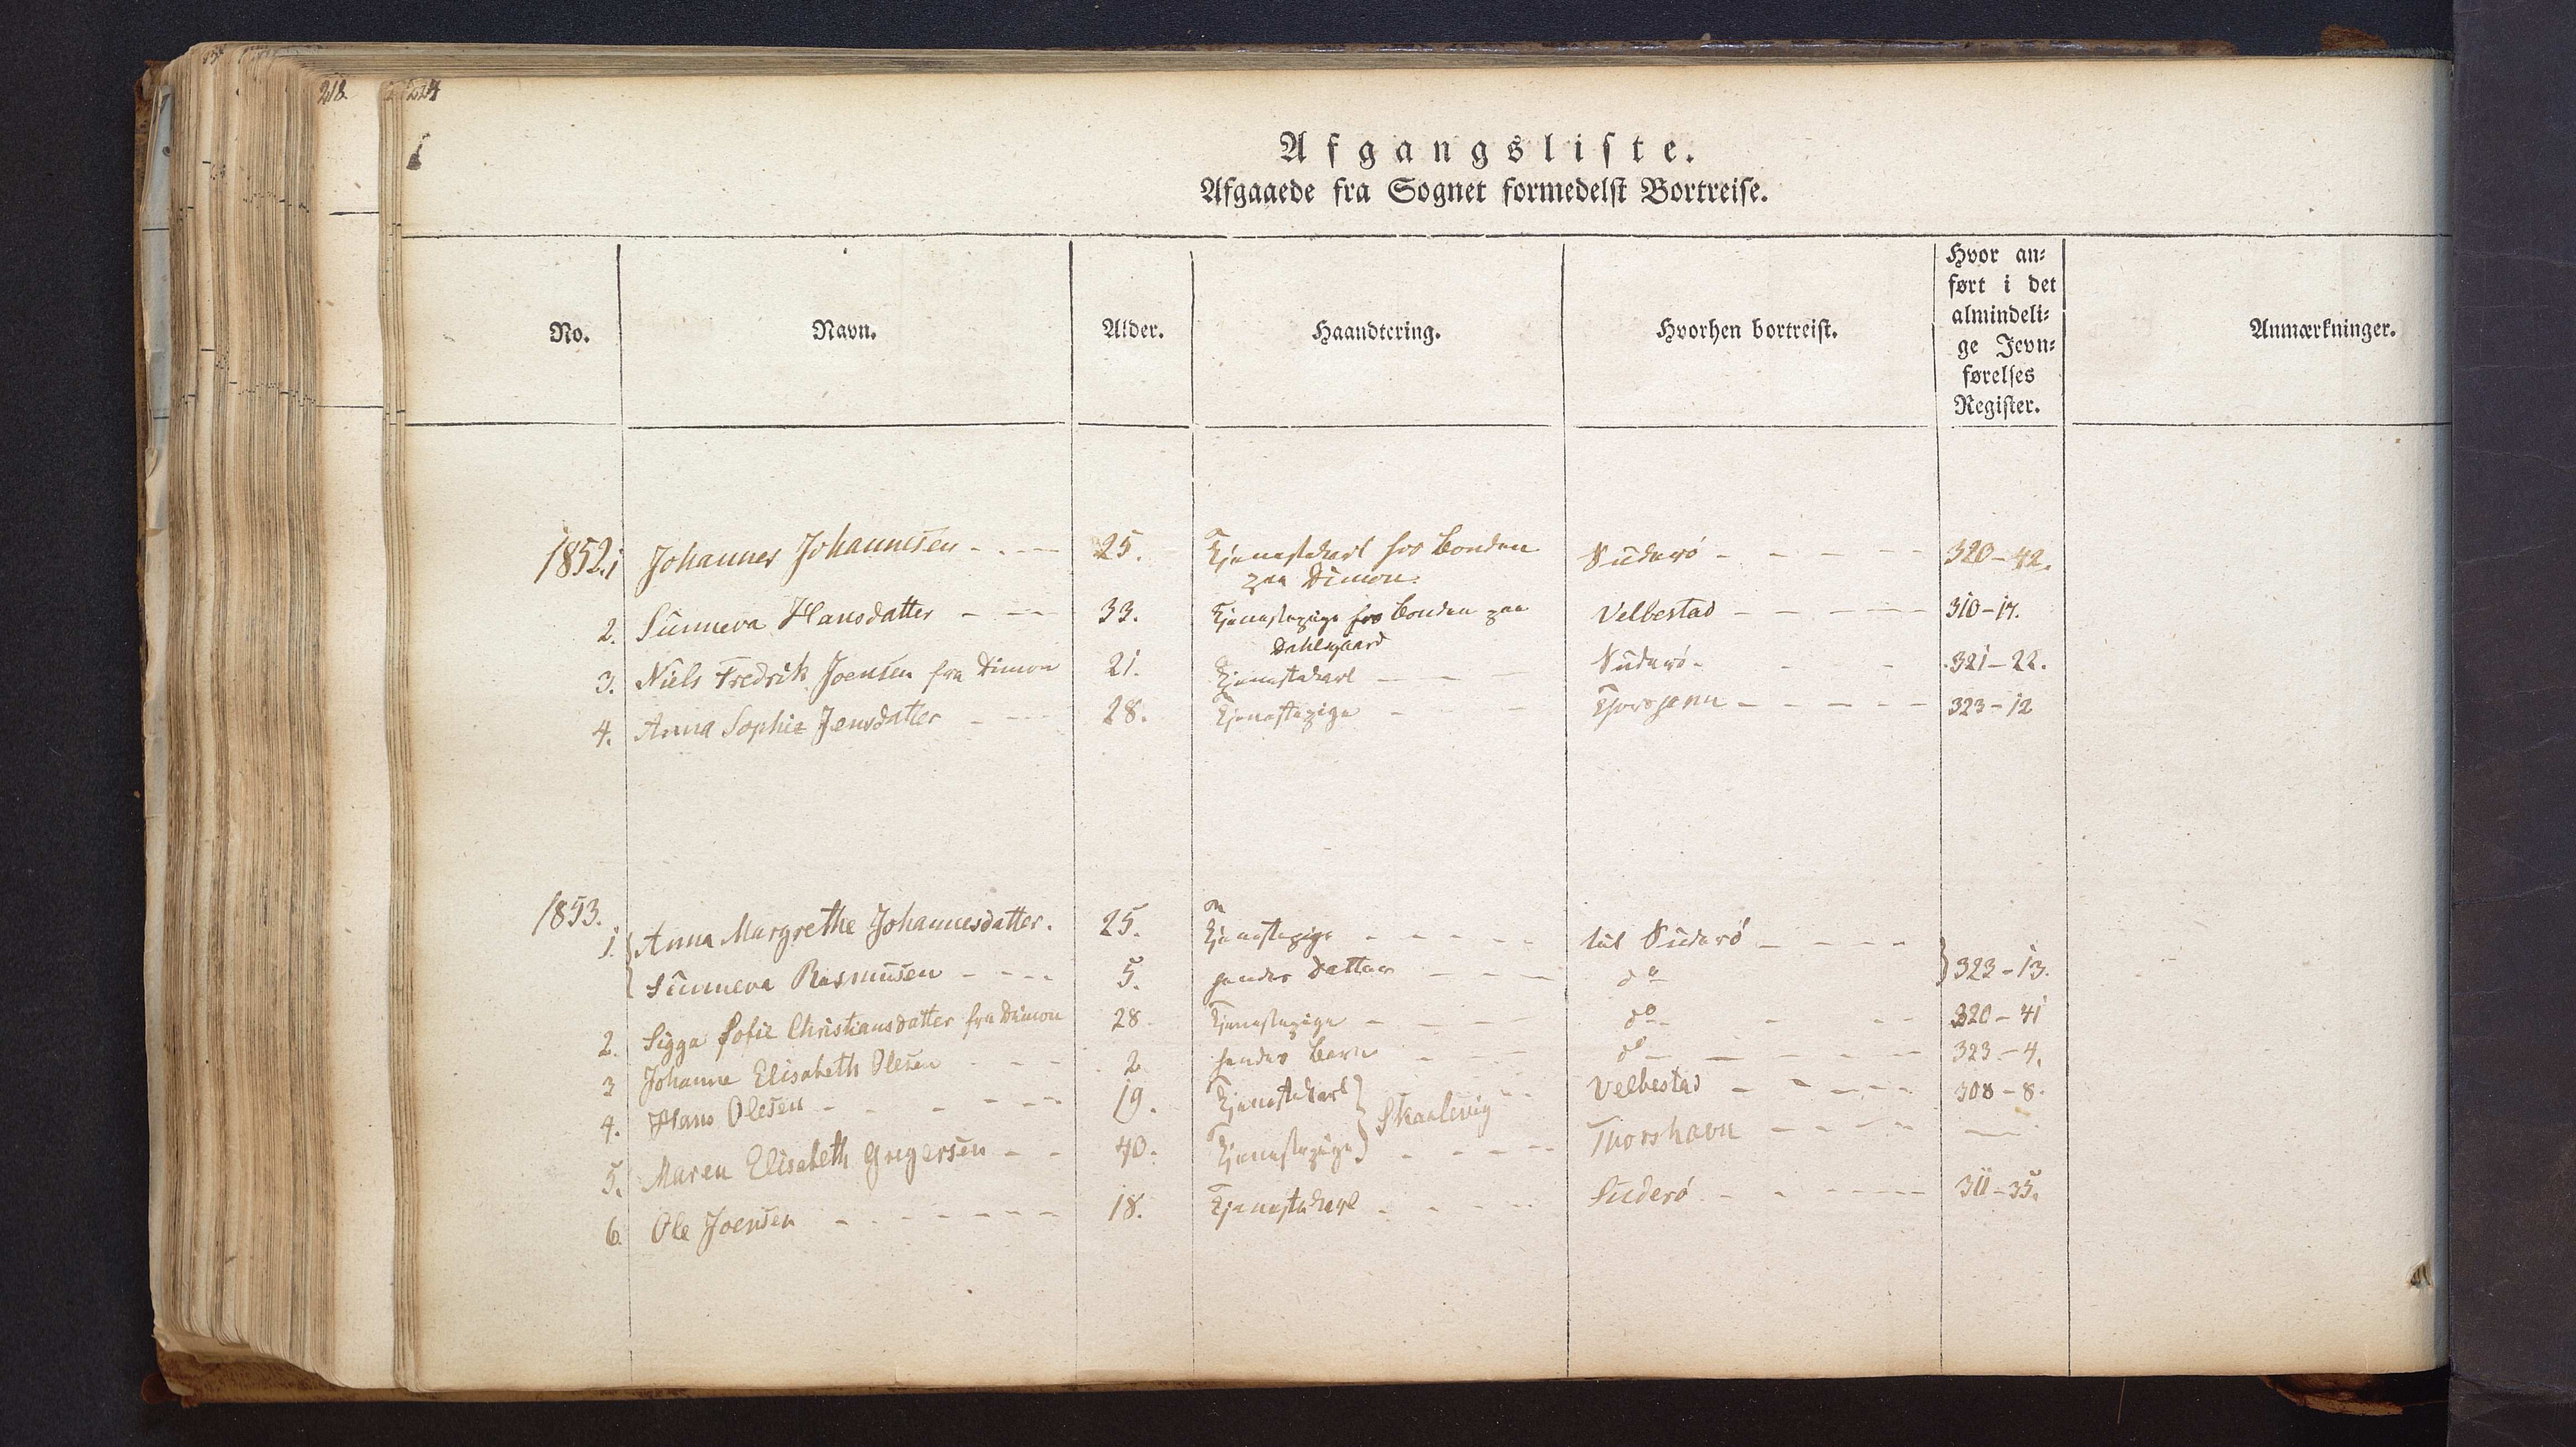 218
224
Afgangsliste.
Afgaaede fra Sognet formedelst Bortreise.
No. Navn. Alder. Haandtering. Hvorhen bortreist. Hvor an= ført i det almindeli= ge Jevn= førelses Register. Anmærkninger.
1852. 1 Johannes Johannesen - - - - 25. Tjenestekarl hos Bonden Suderö - - - - - 320-42.
paa Dimon.
2. Sunneva Hansdatter - - - 33. Tjenestepige hos Bonden paa Velbestad - - - - - 310-17.
Dahlsgaard
3. Niels Fredrik Joensen fra Dimon 21. Tjenestekarl - - - Suderö - - - 321-22.
4. Anna Sophie Jensdatter - - - 28. Tjenestepige - - Thorshavn - - - - - 323-12
1853.
1. Anna Margrethe Johannesdatter. 25. Tjenestepige - - - - - til Suderö - - - -
Sunneva Rasmusen - - - - 5. hendes Datter - - - do 323-13.
2. Sigga Sofie Christiansdatter fra Dimon 28. Tjenestepige - - - do - - - 320-41
3 Johanne Elisabeth Olesen - - - 2 hendes Barn - - - do - - - - - 323-4.
4. Hans Olesen - - - - - - 19. Tjenestekarl } Skaalevig - - Velbestad - - - - - 308-8.
5. Maren Elisabeth Gregersen - - 40. Tjenestepige } - - - - Thorshavn - - - - -
6. Ole Joensen - - - - - - - 18. Tjenestekarl - - - Suderö - - - - - 311-35.